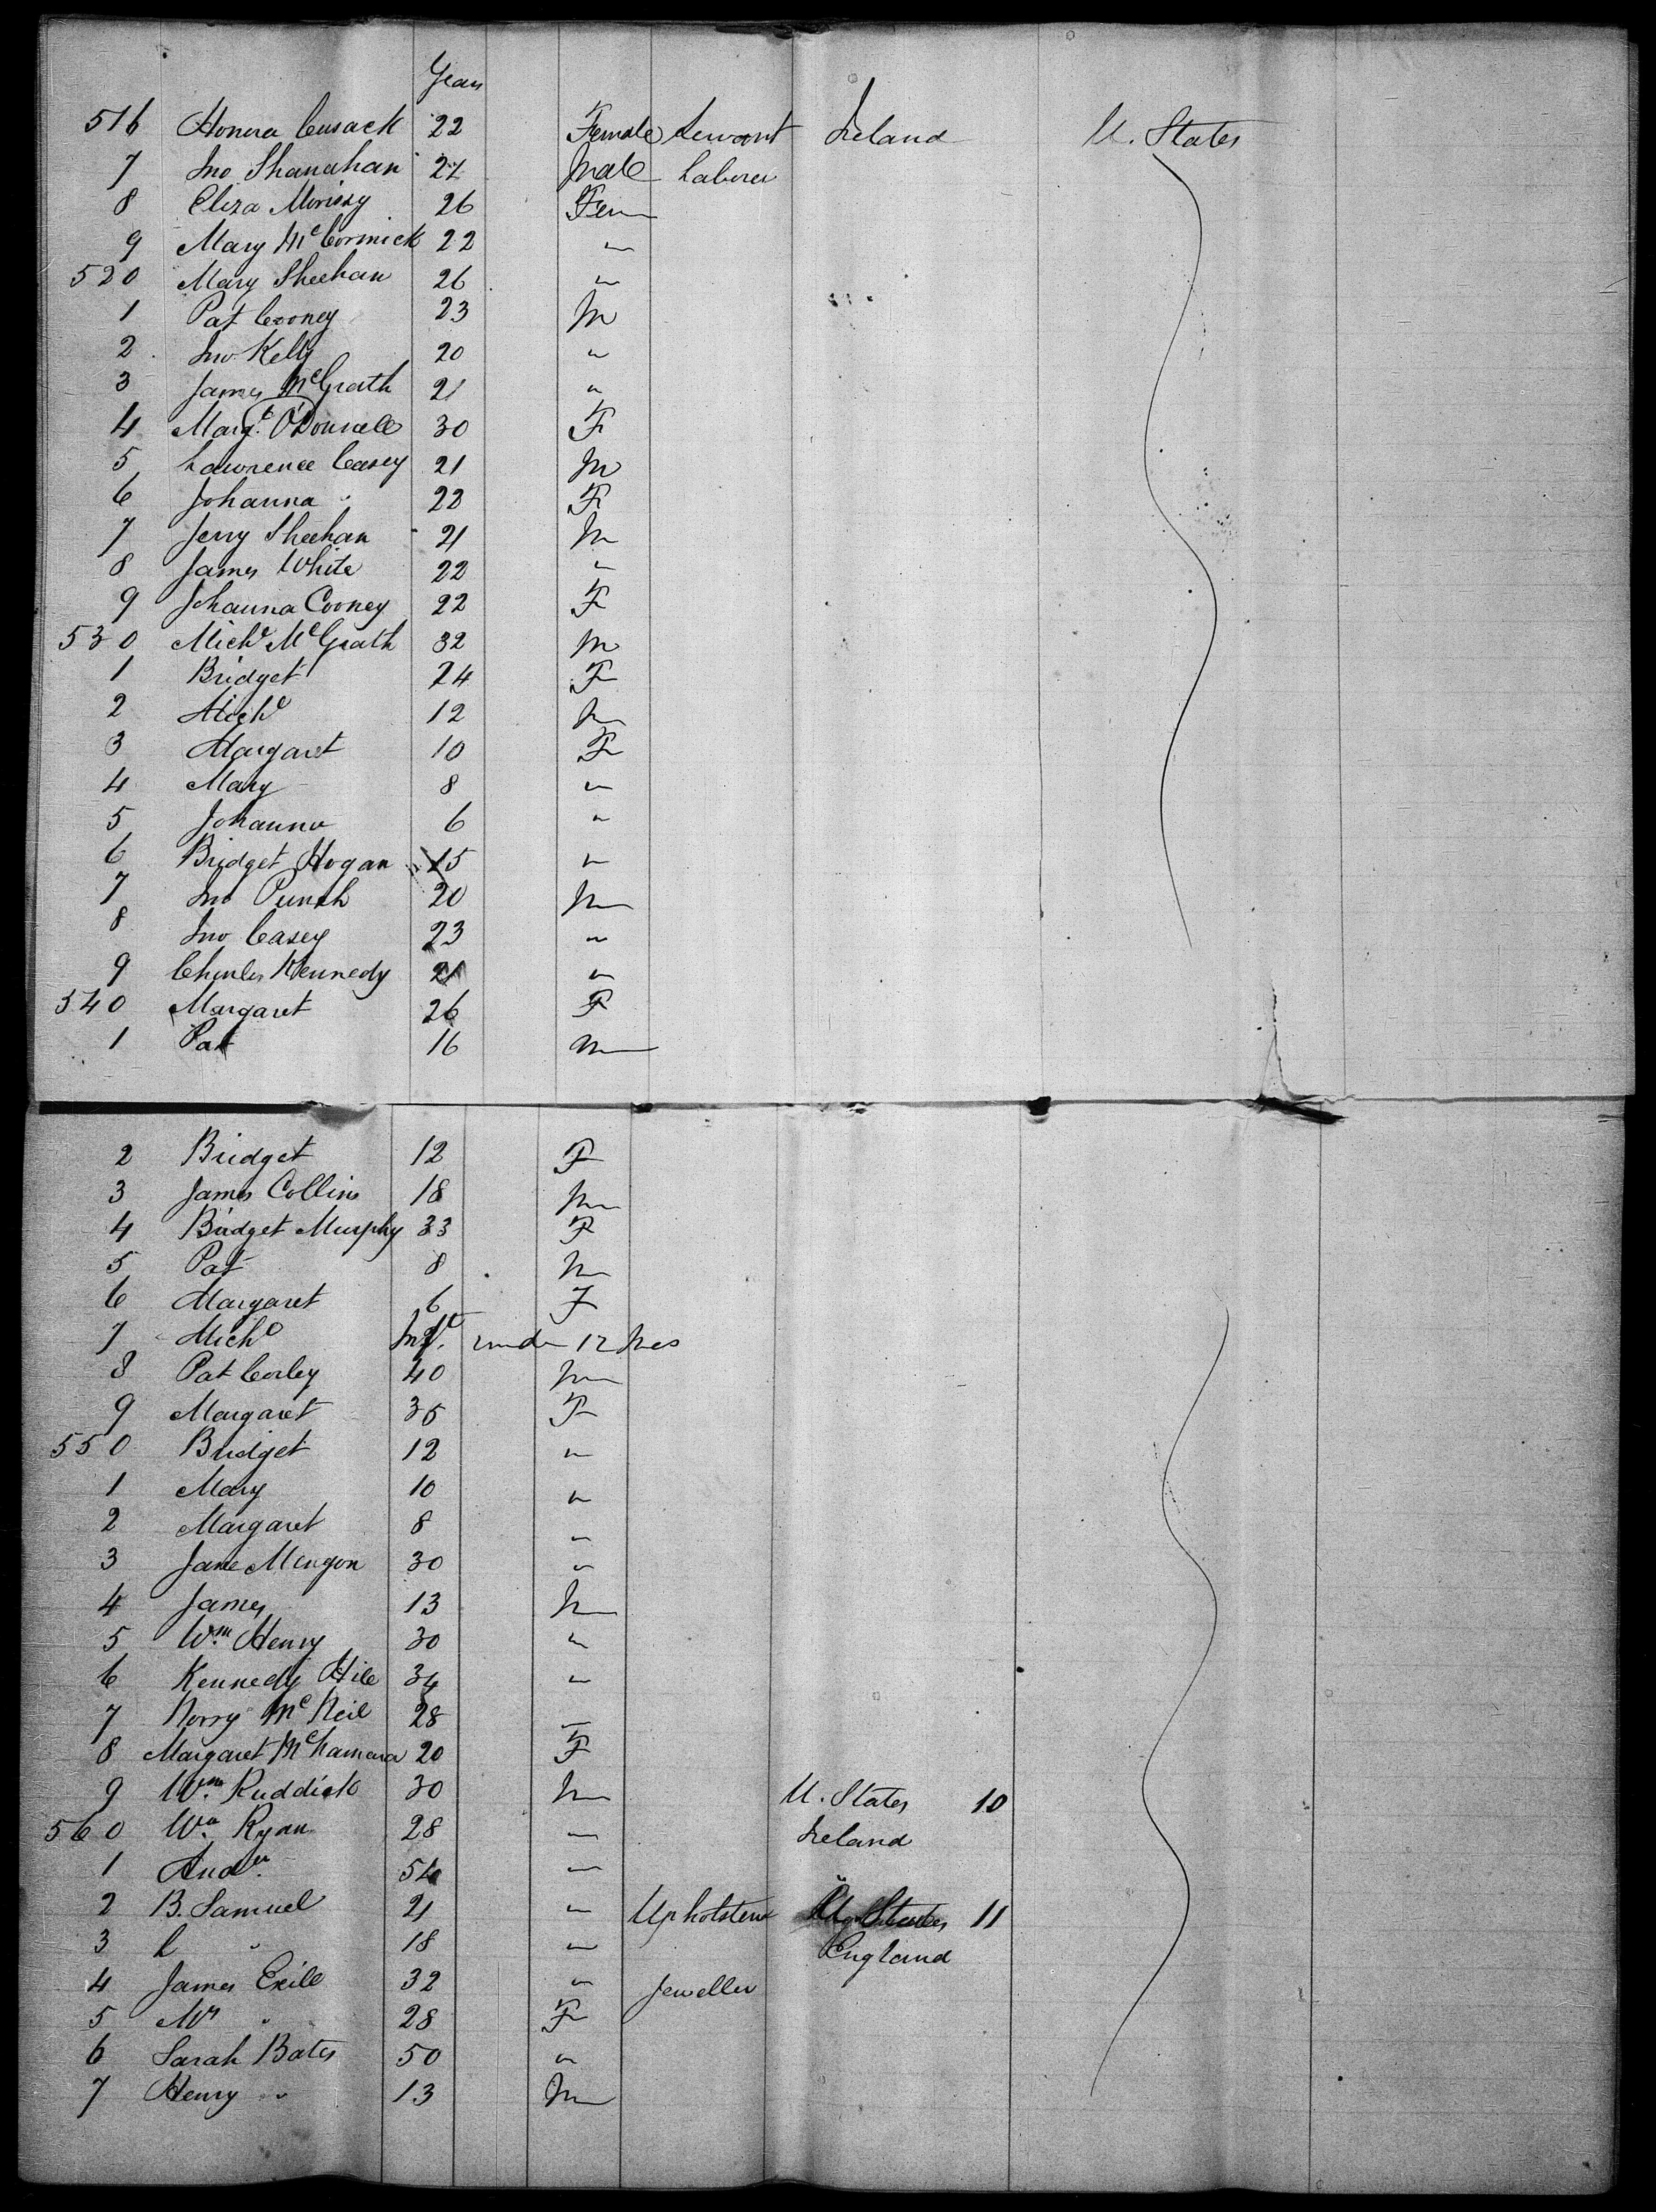 Years
516 Honora Cusack 22 Female Servant Ireland U. States
7 Jno Shanahan 24 Male Laborer
8 Eliza Morissy 26 Fem
9 Mary McCormick 22 "
520 Mary Sheehan 26 "
1 Pat Cooney 23 M
2 Jno Kelly 20 "
3 James McGrath 21 "
4 Margt. O'Donnell 30 F
5 Lawrence Casey 21 M
6 Johanna " 22 F
7 Jerry Sheehan 21 M
8 James White 22 "
9 Johanna Cooney 22 F
530 Michl McGrath 32 M
1 Bridget 24 F
2 Michl 12 M
3 Margaret 10 F
4 Mary 8 "
5 Johanna 6 "
6 Bridget Hogan 15 "
7 Jno Punch 20 M
8 Jno Casey 23 "
9 Charles Kennedy 21 "
540 Margaret 26 F
1 Pat 16 M
2 Bridget 12 F
3 James Collins 18 M
4 Bridget Murphy 33 F
5 Pat 8 M
6 Margaret 6 F
7 Michl Inft. under 12 Mos
8 Pat Corley 40 M
9 Margaret 35 F
550 Bridget 12 "
1 Mary 10 "
2 Margaret 8 "
3 Jane 30 "
4 James 13 M
5 Wm. Henry 30 "
6 Kennedy 34 "
7 McNeil 28 "
8 Margaret McNamara 20 F
9 Wm. Ruddick 30 M U. States 10
560 Wm. Ryan 28 " Ireland
1 Andw. "
2 B. Samuel 21 " Upholsterer U. States 11
3 L " 18 " England
4 James Exill 32 " Jeweller
5 Mrs " 28 F
6 Sarah Bates 50 "
7 Henry " 13 M